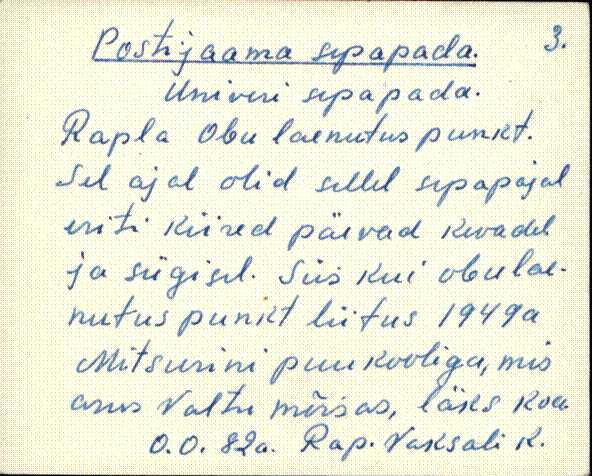 Postijaama sepapada. 3.
Univeri sepapada.
Rapla Obulaenutuspunkt.
Sel ajal olid sellel sepapajal
eriti kiired päevad kevadel
ja sügisel. Siis kui obulae-
nutuspunkt liitus 1949a
Mitsurini puukooliga, mis
asus Valtu mõisas, läks koa
O.O. 82a. Rap. Vaksali k.